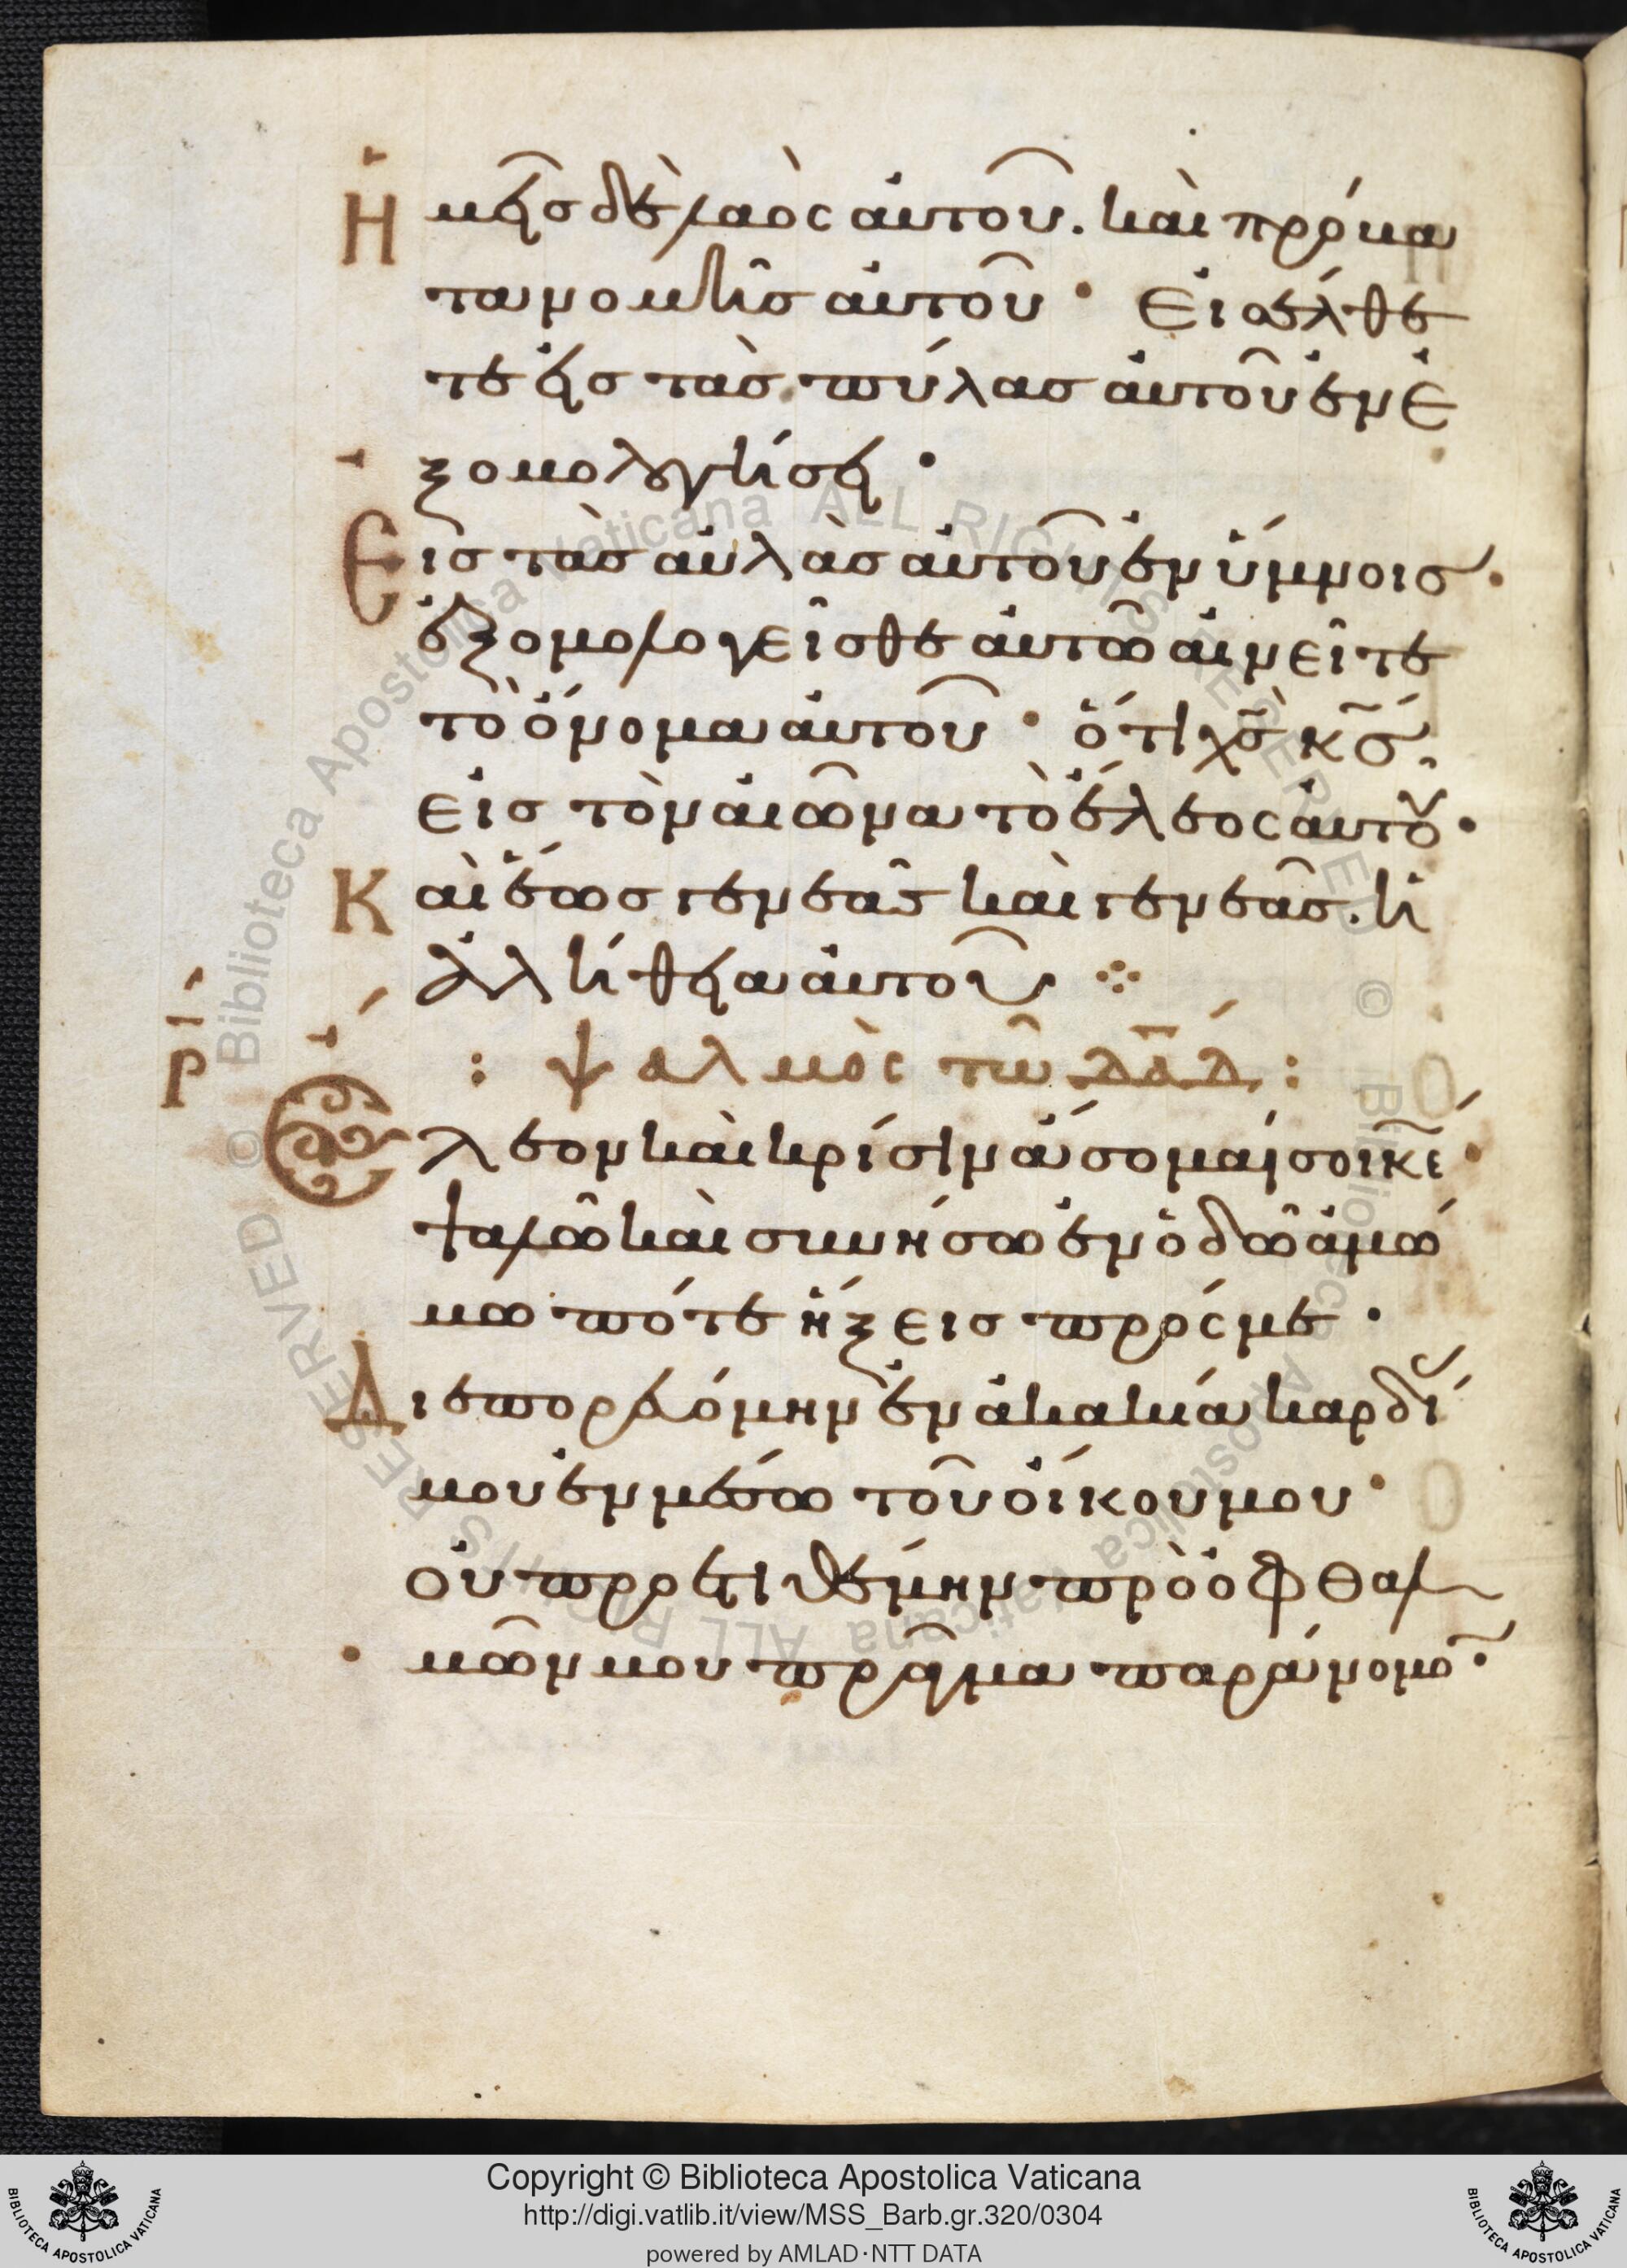 Ἡμεῖς δὲ λαὸς αὐτοῦ. καὶ πρόβα
τα νομῆς αὐτοῦ · Εἰσέλθε
τε εἰς τὰς πύλας αὐτοῦ ἐν ἐ
ξομολογήσει ·
Εἰς τὰς αὐλὰς αὐτοῦ ἐν ὕμνοις ·
ἐξομολογεῖσθε αὐτῶ αἰνεῖτε
τὸ ὄνομα αὐτοῦ · ὅτι χ̅ς̅ κ̅ς̅,
εἰς τὸν αἰῶνα τὸ ἔλεος αὐτοῦ ·
Καὶ ἕως γενεᾶς καὶ γενεᾶς. ἡ
ἀλήθεια αὐτοῦ ⁘
ρ
: ψαλμὸς τῶ δ̅α̅δ̅ :
Ἔλεον καὶ κρίσιν ἄσομαί σοι κ̅ε̅ ·
ψαλῶ καὶ συνήσω ἐν ὁδῶ ἀμώ
μω πότε ἥξεις πρός με ·
Διεπορευόμην ἐν ἀκακία καρδί
μου ἐν μέσω τοῦ οἴκου μου ·
οὐ προετιθέμην πρὸ ὀφθαλ
μῶν μου πρᾶγμα παράνομο ·
Copyright © Biblioteca Apostolica Vaticana
http://digi.vatlib.it/view/MSS_Barb.gr.320/0304
powered by AMLAD·NTT DATA